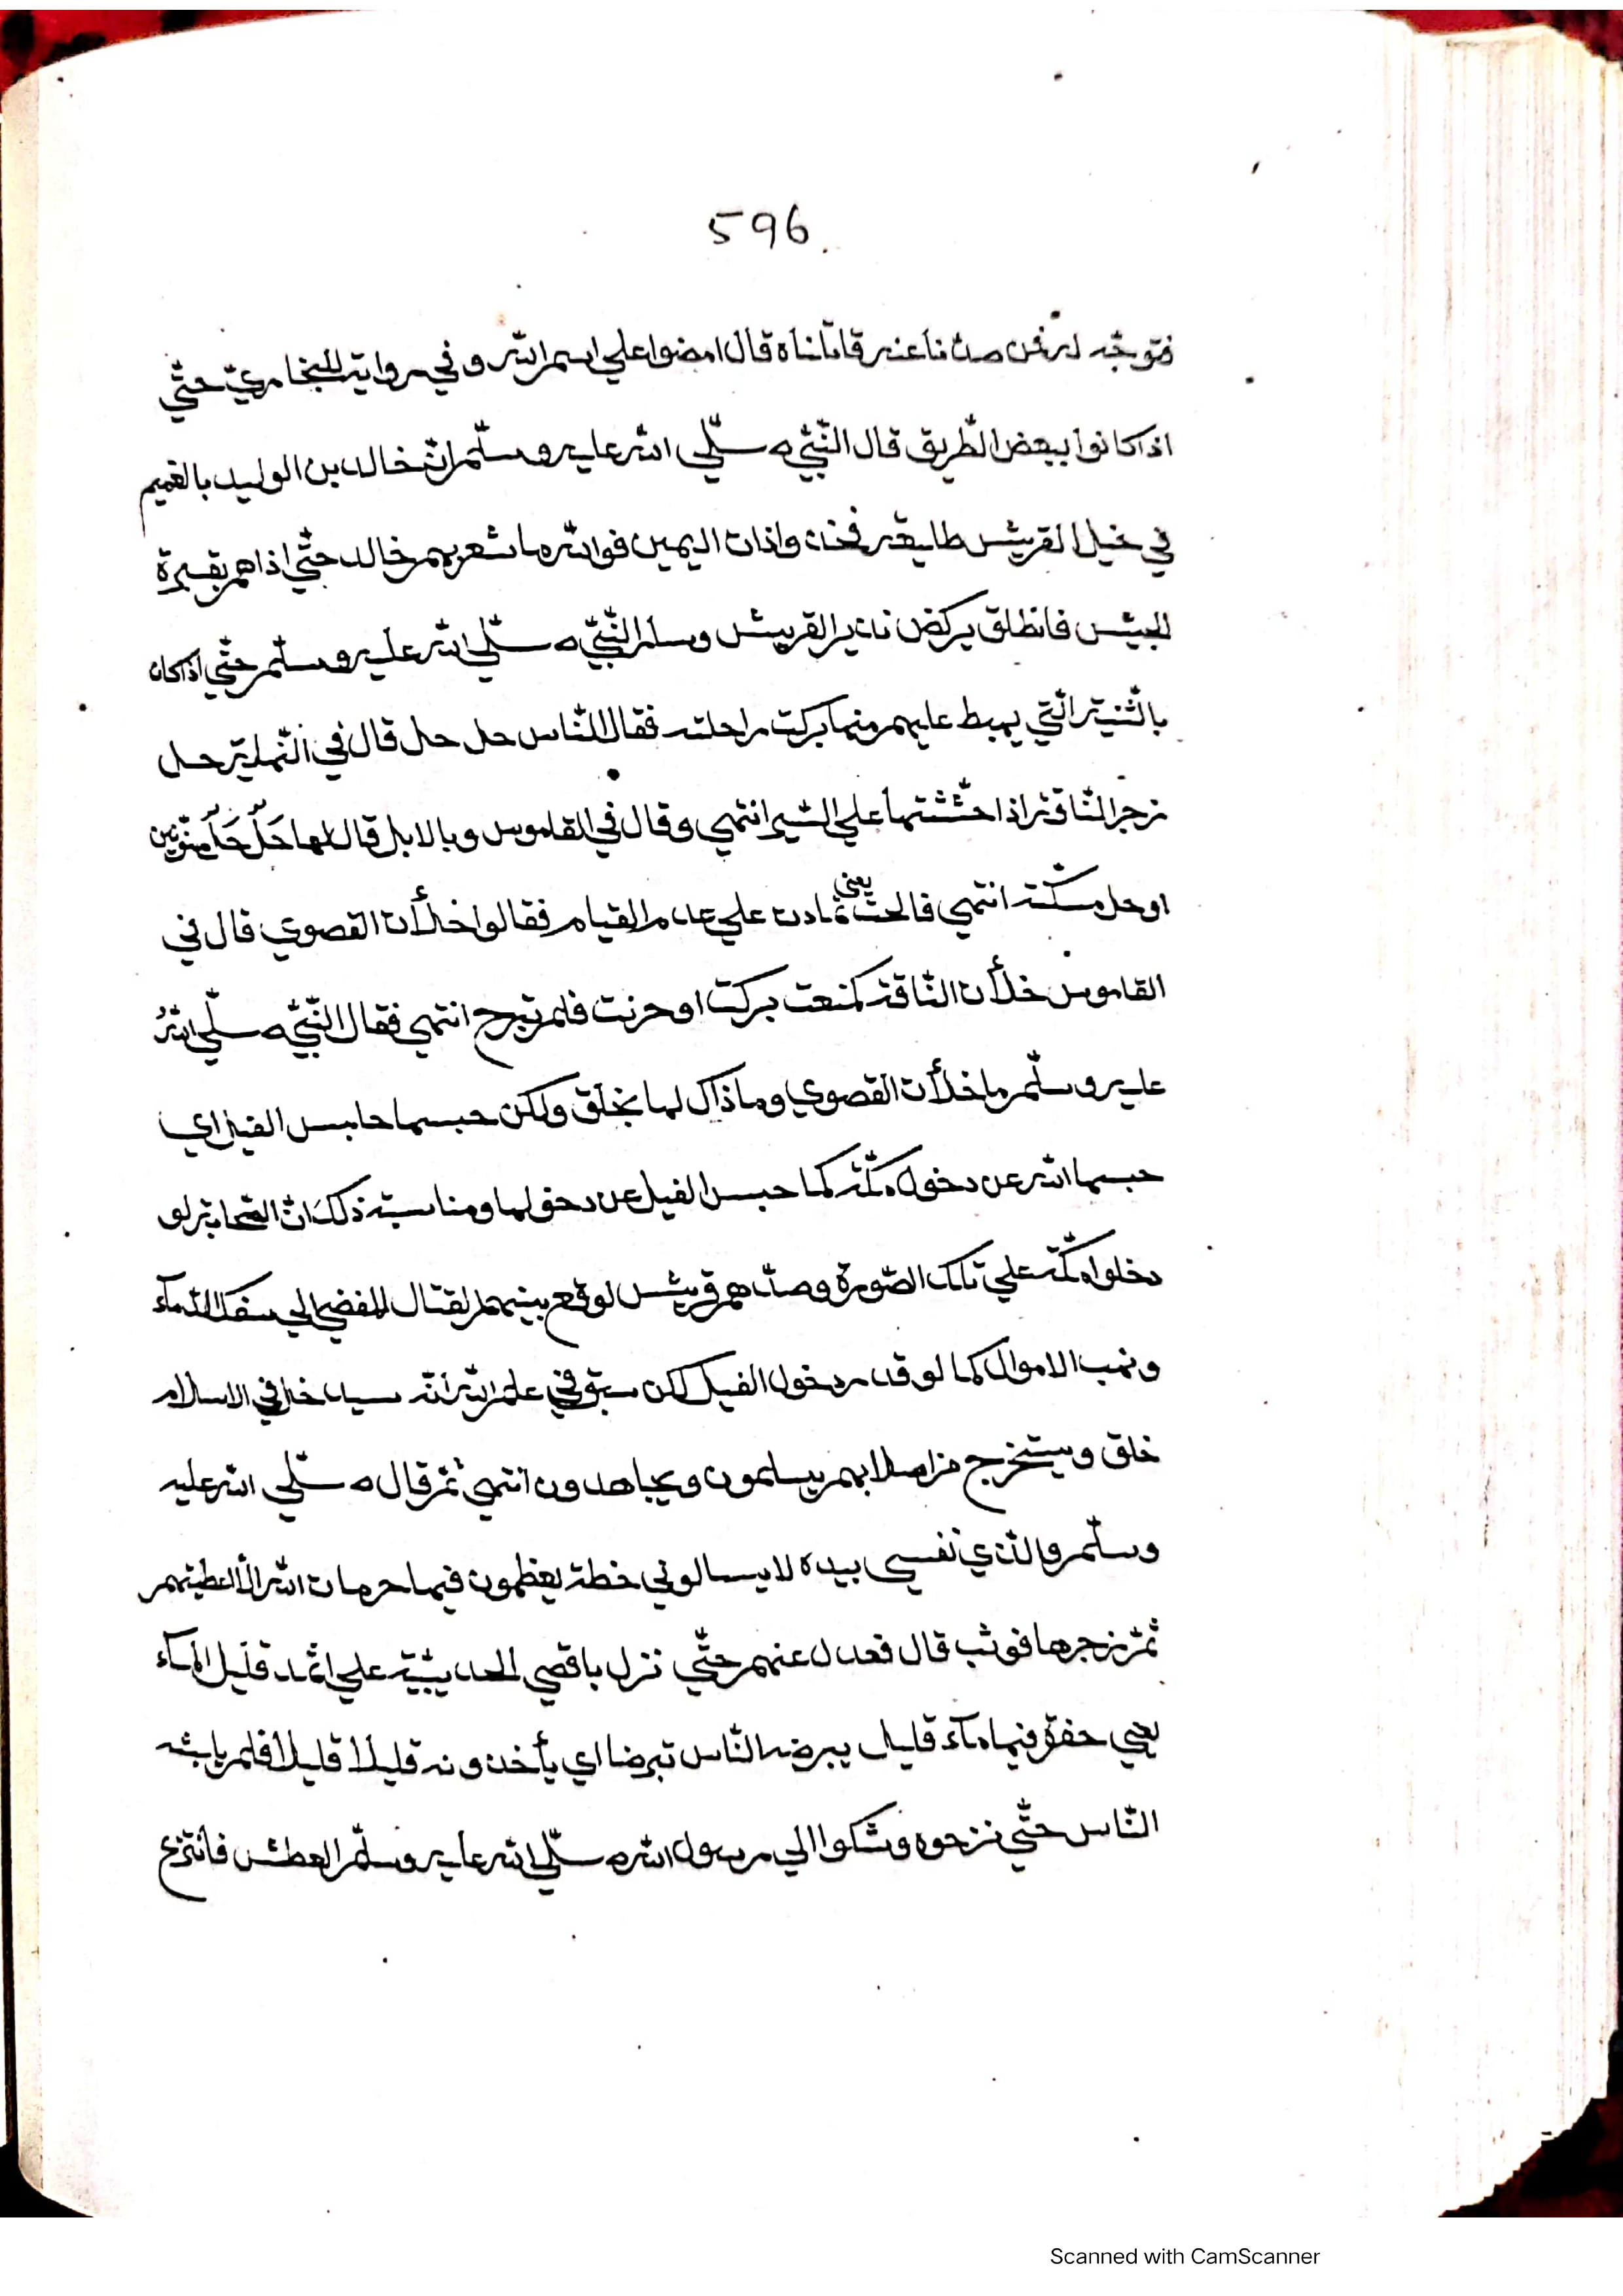 596
فتوجّه له فمن صدّنا عنه قاتلناه قال امضوا علي اسم الله و في رواية للبخاري حتّي
اذا كانوا ببعض الطّريق قال النّبيّ صلّي الله عليه وسلّم انّ خالد بن الوليد بالغميم
في خيل لقريش طليعة فخذوا ذات اليمين فوالله ما شعر بهم خالد حتّي اذا هم بقترة
الجيش فانطلق يركض نذيرا لقريش وسار النّبيّ صلّي الله عليه وسلّم حتّي اذا كان
بالثّنيّة الّتي يهبط عليهم منها بركت راحلته فقال النّاس حل حل قال في النّهاية حل
زجر للنّاقة اذا حثثتها علي السّير انتهي وقال في القاموس وبالابل قال لها حَلٍ حَلٍ منوّنين
او حل مسكّنة انتهي فالحّت يعني تمادت علي عدم القيام فقالوا خلأت القصوي قال في
القاموس خلأت النّاقة كمنعت بركت او حرنت فلم تبرح انتهي فقال النّبيّ صلّي اللهُ
عليه وسلّم ما خلأت القصوي وما ذاك لها بخلق ولكن حبسها حابس الفيل اي
حبسها الله عن دخول مكّة كما حبس الفيل عن دخولها ومناسبة ذلك انّ الصّحابة لو
دخلوا مكّة علي تلك الصّورة وصدّهم قريش لوقع بينهم القتال المفضي الي سفك الدّمآء
ونهب الاموال كما لو قدر دخول الفيل لكن سبق في علم الله انّه سيدخل في الاسلام
خلق ويستخرج من اصلابهم يسلمون ويجاهدون انتهي ثمّ قال صلّي الله عليه
وسلّم والّذي نفسي بيده لا يسالوني خطة يعظمون فيها حرمات الله الّا اعطيتهم
ثمّ زجرها فوثب قال فعدل عنهم حتّي نزل باقصي الحديبيّة علي اثمد قليل المآء
يعني حفرة فيها مآء قليل يبرضه النّاس تبرضا اي يأخذونه قليلًا قليلًا فلم يلبثه
النّاس حتّي نزحوه وشكوا الي رسول الله صلّي الله عليه وسلّم العطش فانتزع
Scanned with CamScanner